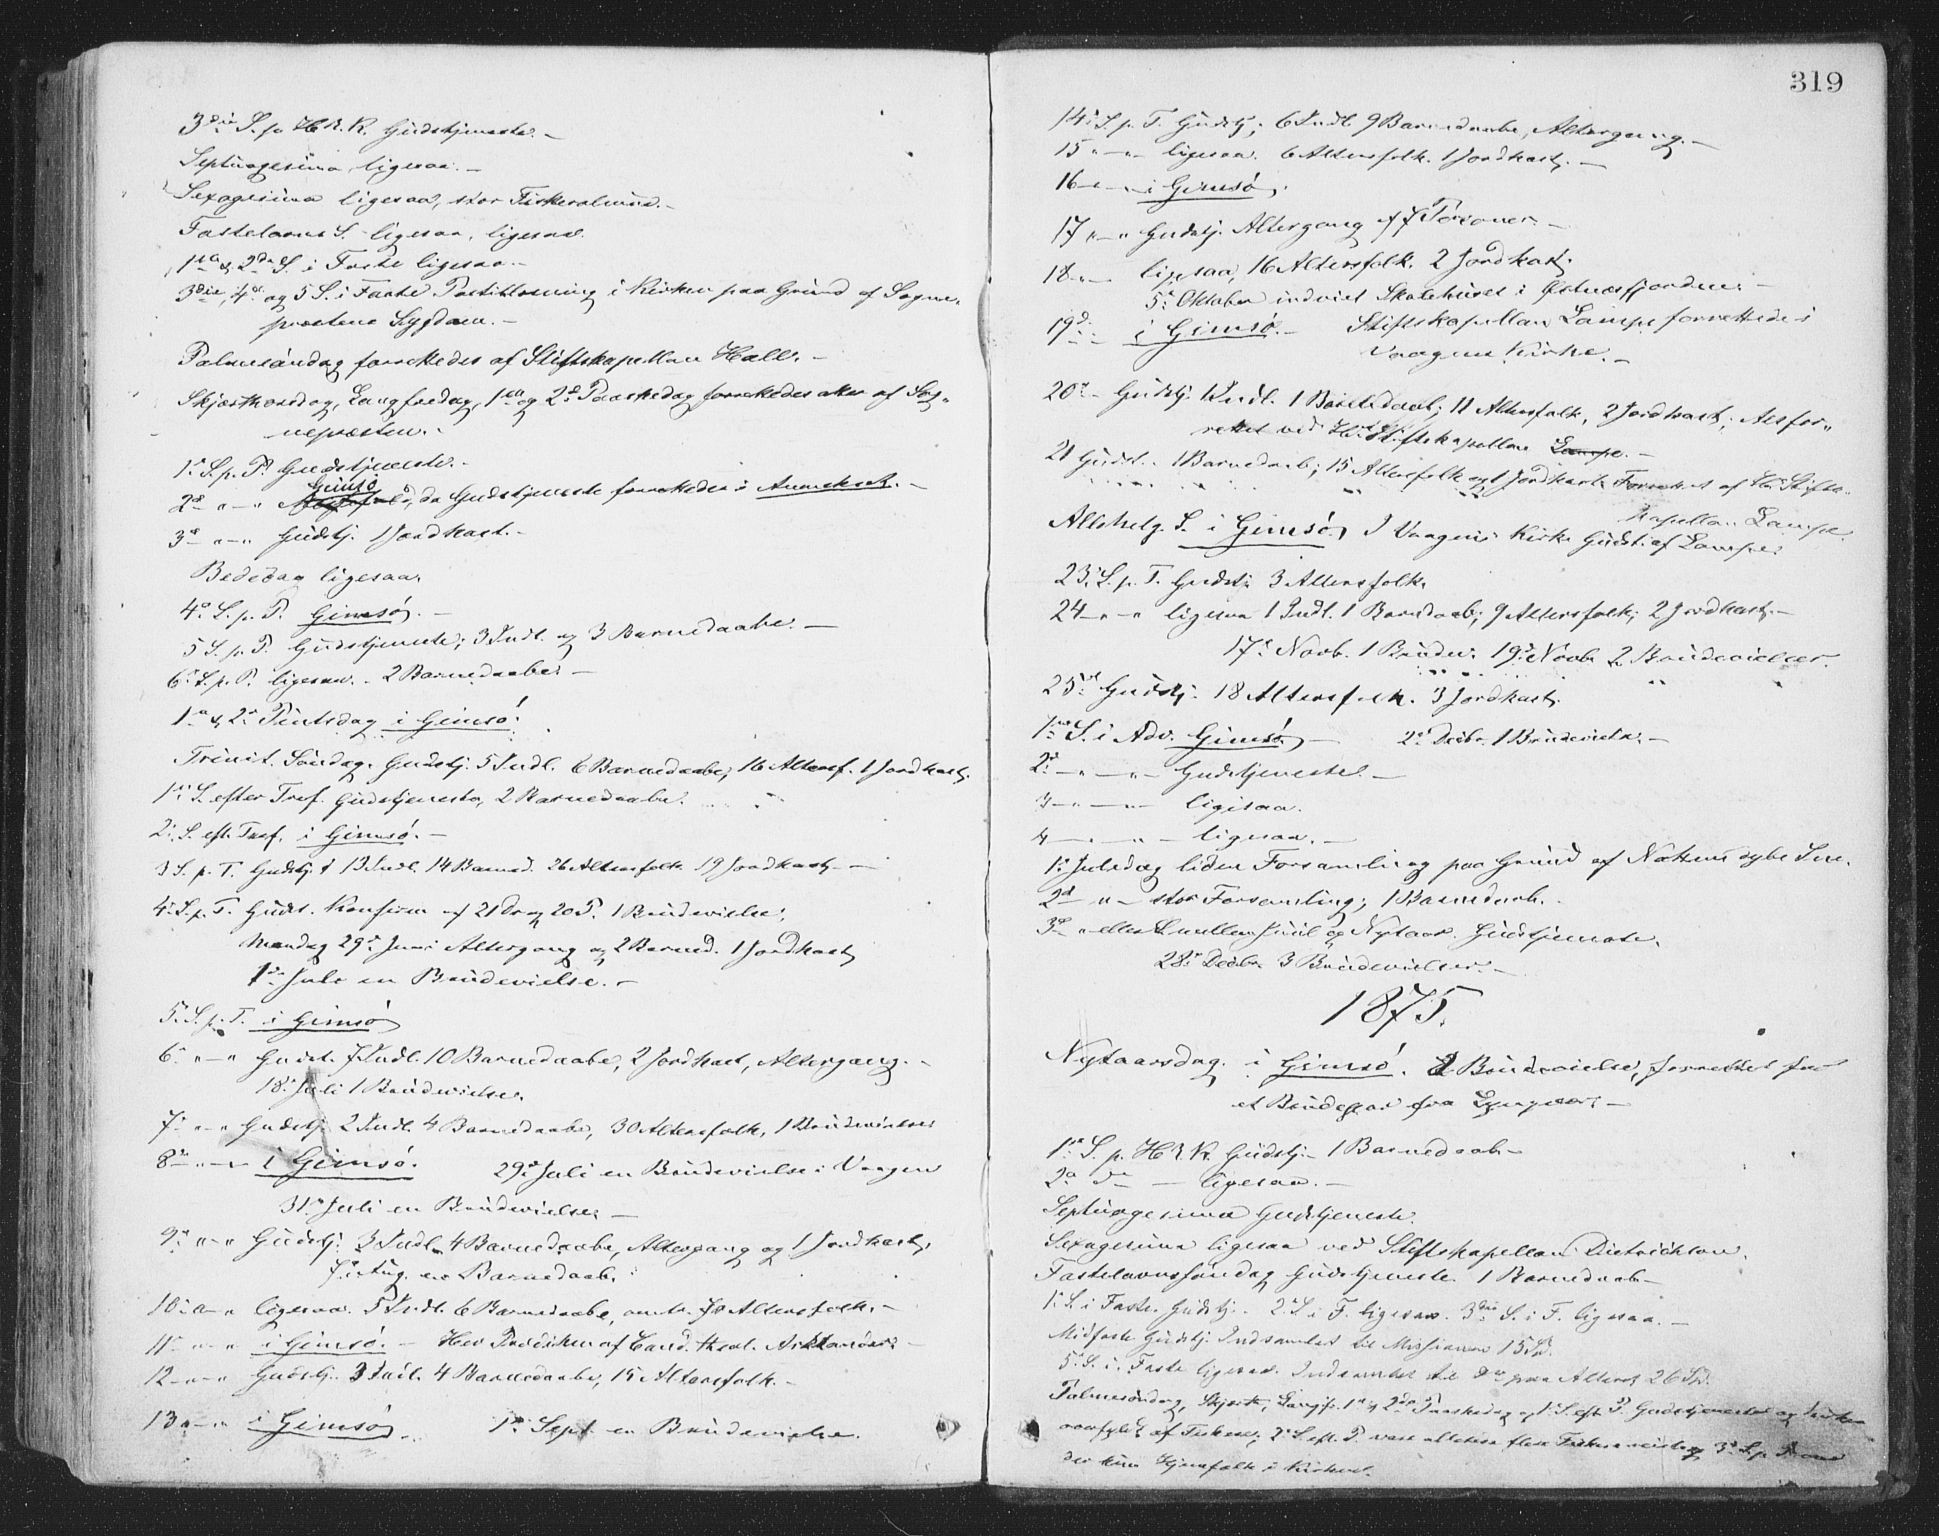 3die S. p. H. 3. K. Gudstjeneste. –
Septuagesima ligesaa. –
Sexagesima ligesaa, stor Fiskeralmue. –
Fastelavns S. ligesaa, ligesaa.
1ste & 2den S. i Faste ligesaa. –
3die, 4de og 5 S. i Faste Postillæsning i Kirken paa Grund af Sogne-
præstens Sygdom. –
Palmesöndag forrettedes af Stiftskapellan Hall. –
Skjærthorsdag, Langfredag, 1ste og 2d Paaskedag forrettedes atter af Sog-
nepræsten. –
1e S. p. P. Gudstjeneste. –
2d „ – „ Gimsö, da Gudstjeneste forrettedes i Annekset. –
3d „ – „ Gudstj. 1 Jordkast. –
Bededag ligesaa.
4d S. p. P. Gimsö. –
5 S. p. P. Gudstjeneste; 3 Indl. og 3 Barnedaabe. –
6e S. p. P. ligesaa. – 2 Barnedaabe. –
1ste & 2d Pintsdag i Gimsö.
Trinit. Söndag. Gudstj. 5 Indl. 6 Barnedaabe; 16 Altersf. 1 Jordkast.
1e S. efter Tref. Gudstjeneste, 2 Barnedaabe.
2e S. eft. Tref. i Gimsö. –
3 S. p. T. Gudstj. 13 Indl. 14 Barned. 26 Altersfolk 19 Jordkast. –
4e S. p. T. Gudst. Konfirm. af 21 Dr. og 20 P. 1 Brudevielse.
Mandag 29d Juni Altergang og 2 Barned. 1 Jordkast
1ste Juli en Brudevielse. –
5. S. p. T. i Gimsö
6e „ – „ Gudst. 7 Indl. 10 Barnedaabe, 2 Jordkast, Altergang. –
18d Juli 1 Brudevielse.
7e „ – „ Gudstj. 2 Indl. 4 Barnedaabe, 30 Altersfolk, 1 Brudevielse
8de „ – „ i Gimsö. 29d Juli en Brudevielse i Vaagen
31te Juli en Brudevielse. –
9de „ – „ Gudstj. 3 Indl. 4 Barnedaabe, Altergang og 1 Jordkast.
en Barnedaab.
10de „ – „ ligesaa. 5 Indl. 6 Barnedaabe, Altersfolk. –
11te „ – „ i Gimsö. – Her Prædiken af Cand. theol.
12 – „ – „ Gudstj. 3 Indl. 4 Barnedaabe, 15 Altersfolk. –
13 „ – „ i Gimsö. 1ste Sept. en Brudevielse.
319
14e S. p. T. Gudstj; 6 Indl. 9 Barnedaabe, Altergang. –
15 „ – „ ligesaa. 6 Altersfolk. 1 Jordkast. –
16 – „ – „ i Gimsö.
17 „ – „ Gudstj. Altergang af 7 Personer. –
18 „ – „ ligesaa, 16 Altersfolk. 2 Jordkast.
5e Oktober indviet Skolehuset i Östnesfjorden. –
19d „ i Gimsö. – Stiftskapellan Lampe forrettede i
Vaagens Kirke. –
20e – Gudstj. 1 Indl. 1 Barnedaab; 11 Altersfolk, 2 Jordkast. Altfor-
rettet ved Hr. Stiftskapellan Lampe. –
21 Gudst. 1 Barnedaab; 15 Altersfolk og 1 Jordkast Forrettet af Hr. Stifts-
kapellan Lampe.
Allehelg. S. i Gimsö I Vaagens Kirke Gudst. af Lampe.
23. S. p. T. Gudstj. 3 Altersfolk.
24 – „ – „ ligesaa 1 Indl. 1 Barnedaab; 9 Altersfolk; 2 Jordkast. –
17d Novb. 1 Brudev. 19d Novb. 2 Brudevielser.
25de Gudstj. 18 Altersfolk. 3 Jordkast.
1ste S. i Adv. Gimsö – 2d Decbr. 1 Brudevielse. –
2d – „ – „ – Gudstjeneste. –
3 – „ – „ – ligesaa.
4 – „ – „ – ligesaa. –
1e Juledag liden Forsamling paa Grund af Nattens dybe Sne.
2d „ – stor Forsamling; 1 Barnedaab. –
3d „ eller S. mellem Juul og Nytaar. Gudstjeneste.
28d Decbr. 3 Brudevielser. –
1875.
Nytaarsdag i Gimsö. 2 Brudevielse, forrettet for
et Brudepar fra Lyngvær. –
1ste S. p. H. 3. K. Gudstj. – 1 Barnedaab. –
2d – ligesaa. –
Septuagesima Gudstjeneste.
Sexagesima ligesaa ved Stiftskapellan Dietrichson.
Fastelavnssöndag Gudstjeneste. 1 Barnedaab –
1e S. i Faste. Gudstj. 2e S. i F. ligesaa. 3die S. i F. ligesaa. –
Midfaste Gudstj. Indsamlet til Missionen 15 Spd.
5e S. i. Faste ligesaa. Indsamlet til Do paa Alteret 26 Spd.
Palmesöndag, Skjærth., Langfr. 1ste & 2den Paaskedag og 1e S. eft. P. Gudstjeneste og Kirken
overfyldt af Fiskere; 2e S. eft. P. vare alletiders flere Fiskere 3d S. p. P. var
der kun Hjemfolk i Kirken.